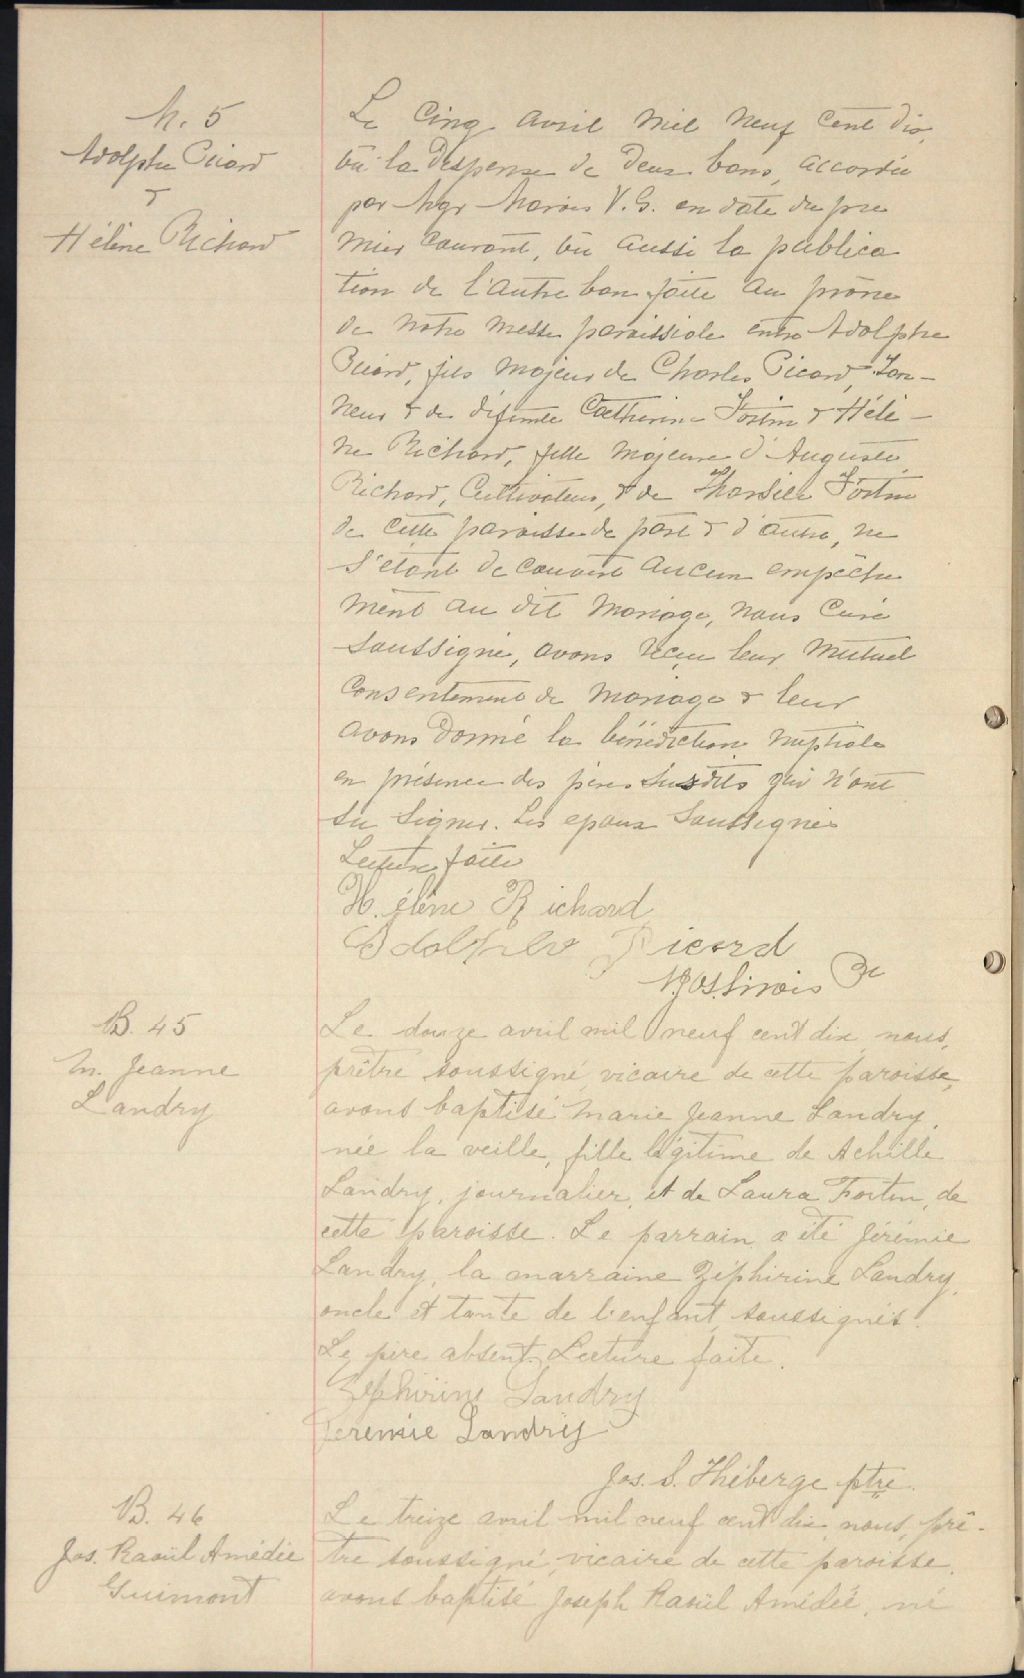 M. 5
Adolphe Picard
&
Hélène Richard
Le cinq avril mil neuf cent dix,
vu la dispense de deux bans, accordée
par Mgr Marois V. G. en date du pre
mier courant, vu aussi la publica
tion de l'autre ban faite au prône
de notre messe paroissiale entre Adolphe
Picard, fils majeur de Charles Picard, Tan-
neur & de défunte Catherine Fortin & Hélè-
ne Richard, fille majeure d'Auguste
Richard, Cultivateur, & de Tharsile Fortin
de cette paroisse de part & d'autre, ne
s'étant découvert aucun empêche
ment au dit mariage, nous Curé
soussigné, avons reçu leur mutuel
consentement de mariage & leur
avons donné la bénédiction nuptiale
en présence des pères susdits qui n'ont
su signer. Les epoux soussignés
Lecture faite
Hélène Richard
Adolphe Picard
Jos. Sirois Ptre
B. 45
M. Jeanne
Landry
Le douze avril mil neuf cent dix, nous,
prêtre soussigné, vicaire de cette paroisse,
avons baptisé Marie Jeanne Landry,
née la veille, fille légitime de Achille
Landry, journalier, et de Laura Fortin, de
cette paroisse. Le parrain a été Jérémie
Landry, la marraine Zéphirine Landry,
oncle et tante de l'enfant, soussignés.
Le père absent. Lecture faite.
Zéphirine Landry
Jeremie Landry
Jos. S. Théberge ptre.
B. 46
Jos. Raoül Amédée
Guimont
Le treize avril mil neuf cent dix nous, prê-
tre soussigné, vicaire de cette paroisse,
avons baptisé Joseph Raoül Amédée, né